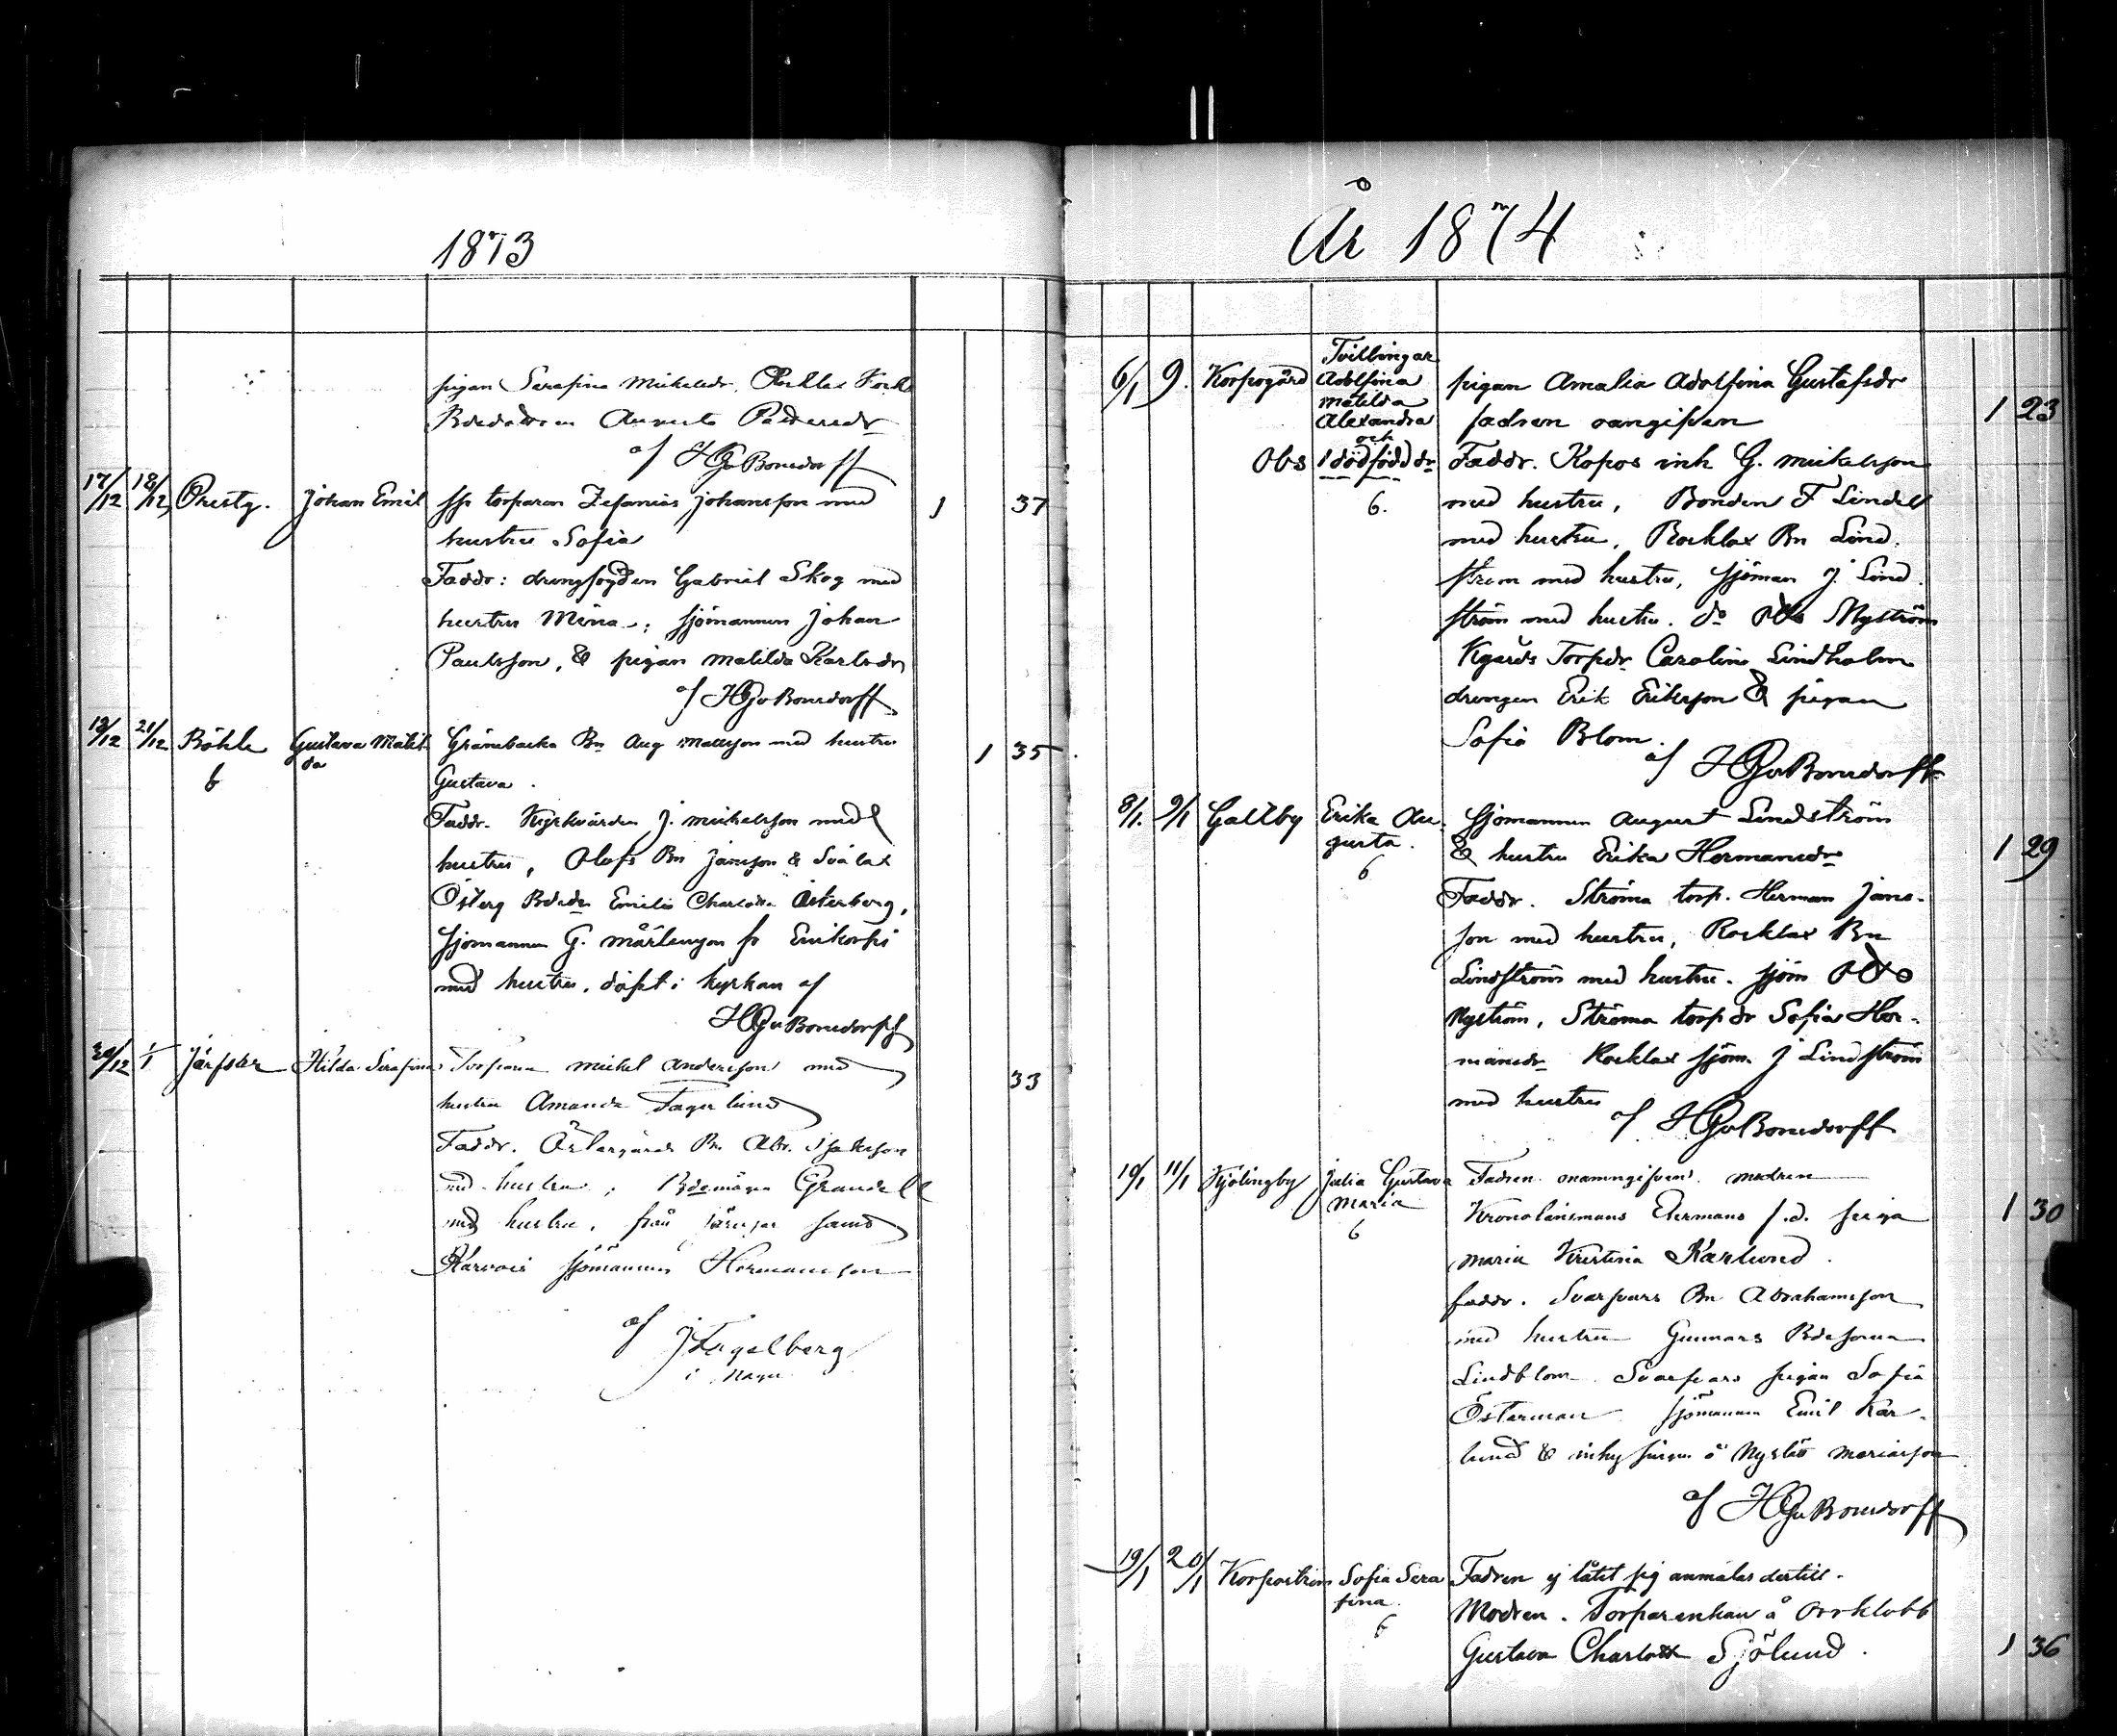 1873
pigan Serafina Mickelsdr, Rocklax
Augusta Pettersdr
af HGvBonsdorff
17/12 18/12 Prestg. Johan Emil ssp torparen Zefanias Johansson med 1 37
hustru Sofia
Faddr: drengfogden Gabriel Skog med
hustru Mina; sjömannen Johan
Paulsson, & pigan Matilda Karlsdr
af HGvBonsdorff
19/12 21/12 Böhle Gustava Matil Grännbacka Bn Aug Mattsson med hustru 1 35
da
6 Gustava.
Faddr. Kyrkvärden J. Mickelsson med
hustru, Olofs Bn Jansson &
Österg Bdedr Emilia Charlotta Österberg,
sjömannen G. Mårtensson fr Enikorfsi
med hustru, döpt i kyrkan af
HGvBonsdorff
30/12 1/1 Järfsor Hilda Serafina Torparen Mickel Andersson med 33
hustru Amanda Fagerlund
Faddr. Östergårds Bn Abr. Isaksson
med hustru; Bdemågen Grandell
med hustru, från samt
sjömannen Hermansson
af J Fagelberg
i Nagu
År 1874
Tvillingar
6/1 9. Korpogård Adolfina pigan Amalia Adolfina Gustafsdr
Matilda
Alexandra fadren oangifven 1 23
och
Obs 1 dödfödd dr Faddr. Kopos inh G. Mickelsson
6. med hustru, Bonden F Lindell
med hustru, Rocklax Bn Lind.
strom med hustru, sjöman J. Lind.
ström med hustru. do Otto Nyström
Kgårds Torpdr Carolina Lindholm
drengen Erik Eriksson & pigan
Sofia Blom.
af HGvBonsdorff
8/1. 9/1 Galtby Erika Au. sjömannen August Lindström
gusta. & hustru Erika Hermansdr 1 29
6
Faddr. Ströma torp. Herman Jans-
son med hustru, Rocklax Bn
Lindström med hustru. sjöm Otto
Nyström, Ströma torpdr Sofia Her-
mansdr Rocklax sjöm J Lindström
med hustru
af HGvBonsdorff
10/1 11/1 Kjölingby Julia Gustava Fadren onamngifven. modren
Maria Kronolänsmans Ekermans f.d. piga 1 30
6
Maria Kristina Karlund.
faddr. Svarfvars Bn Abrahamsson
med hustru Gunnars Bdesonen
Lindblom Svarfvars pigan Sofia
Österman sjömannen Emil Kar-
lund & inhysingen å Nyslätt Mariasson
af HGvBonsdorff
19/1 20/1 Korpoström Sofia Sera Fadren ej låtit sig anmälas dertill.
fina.
6 Modren. Torparenkan å Orrklobb
Gustava Charlotta Sjölund. 1 36